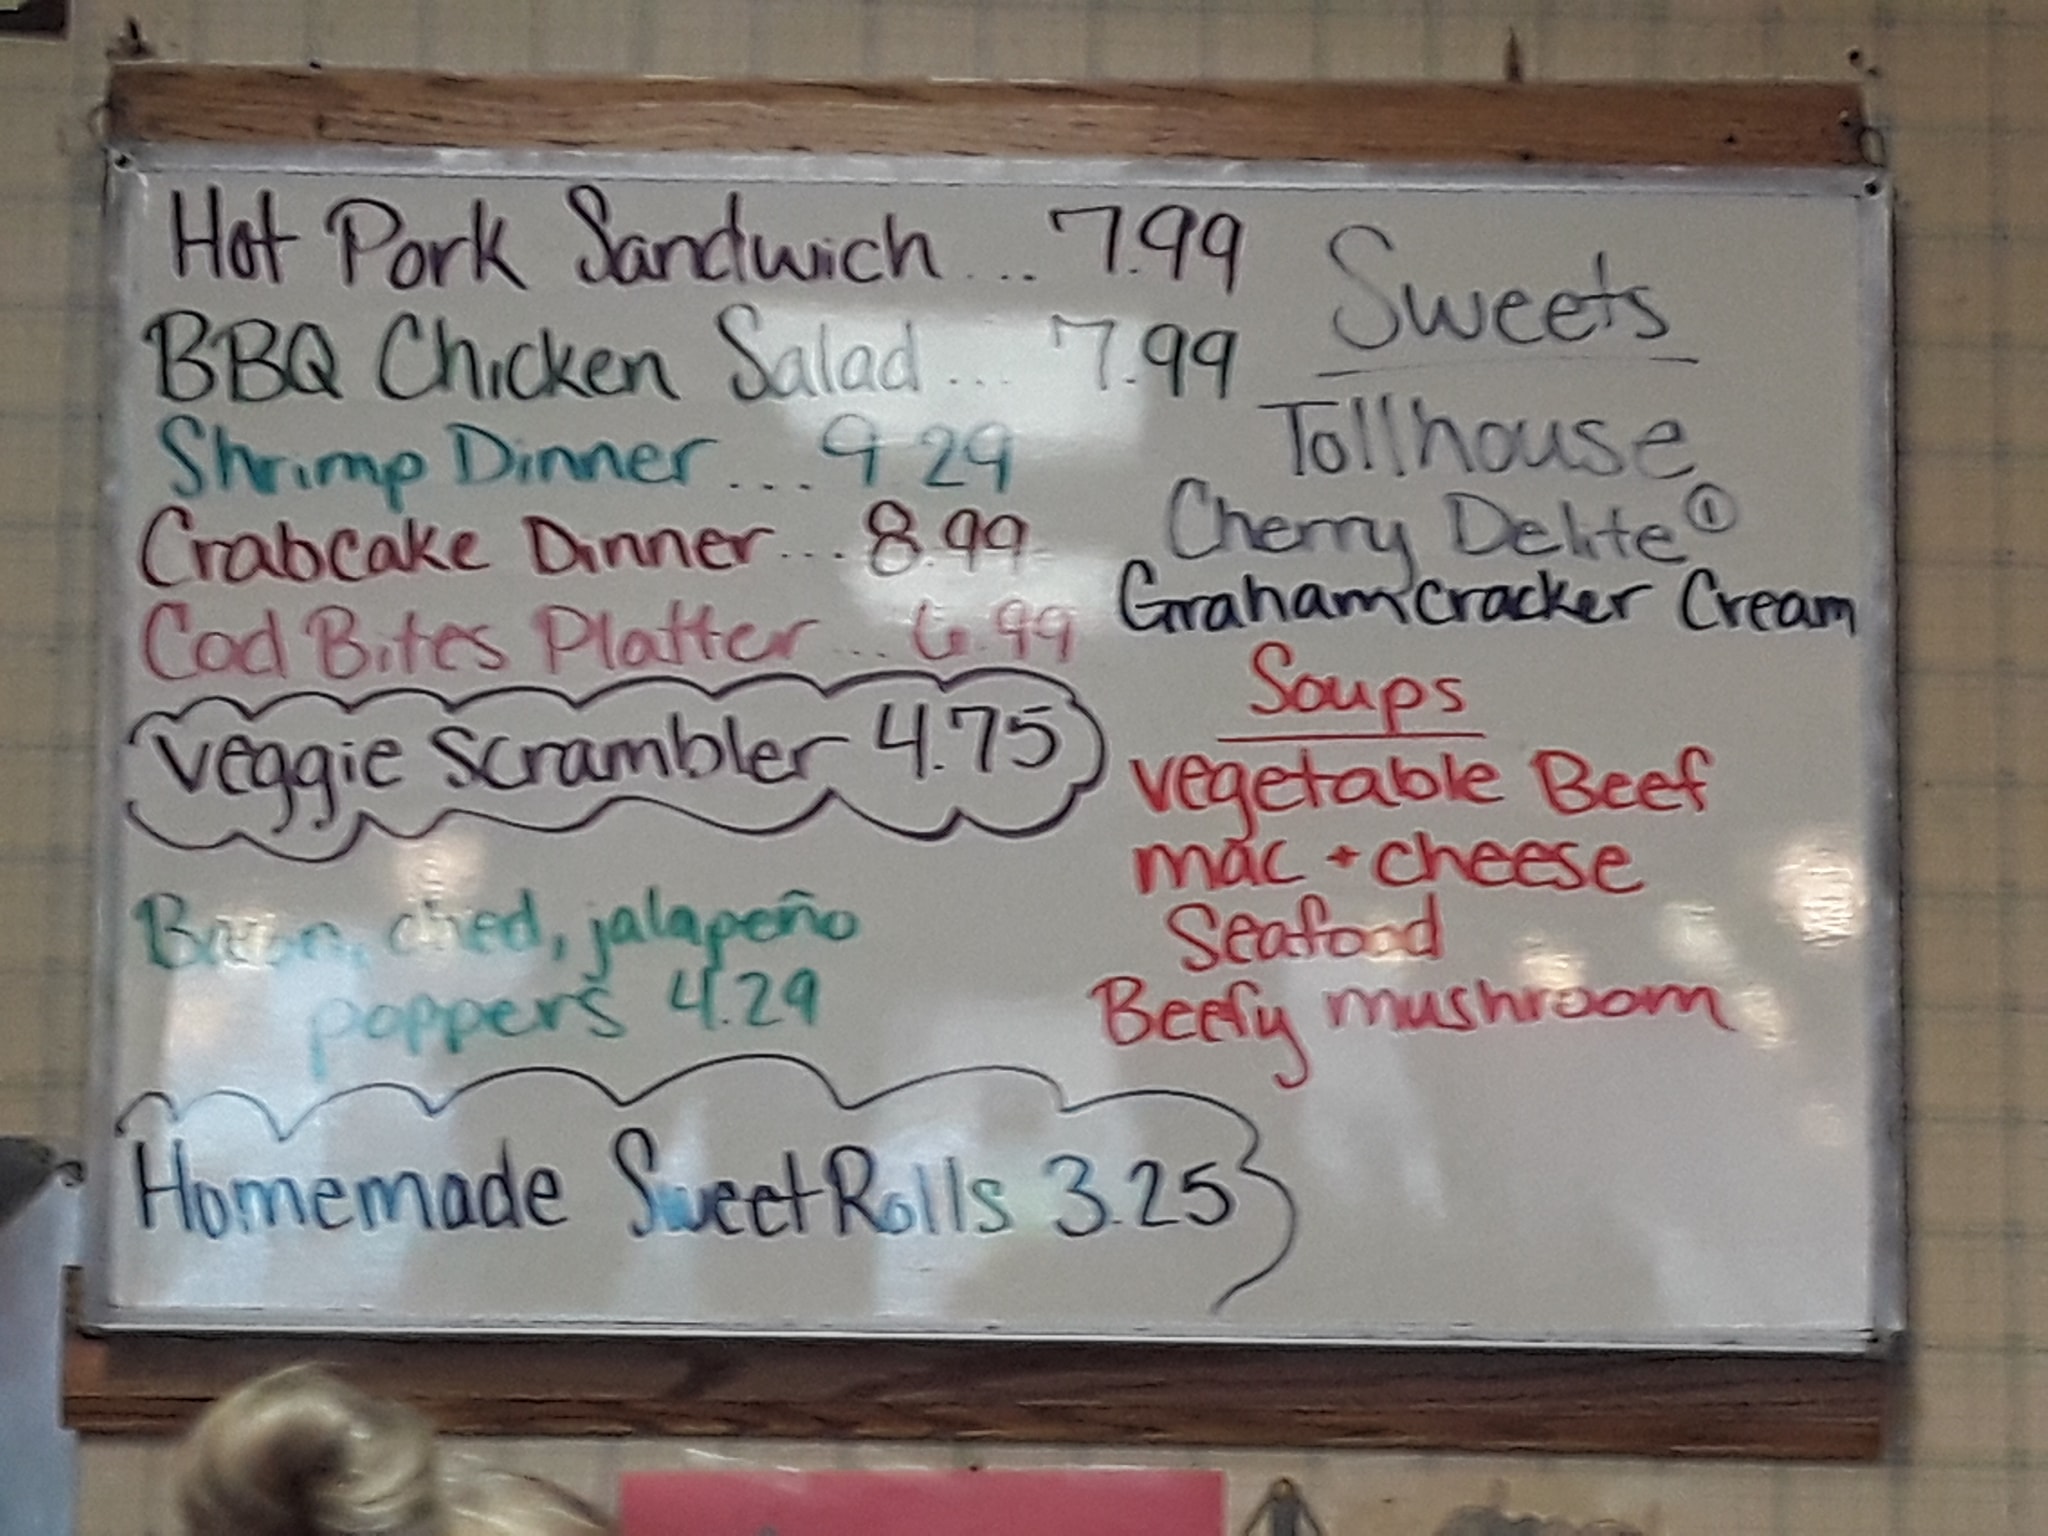 Hot Pork Sandwich ... 7.99
BBQ Chicken Salad ... 7.99
Shrimp Dinner .... 9.29
Crabcake Dinner ... 8.99
Cod Bites Platter ... 6.99
Veggie Scrambler 4.75
Bacon, ched, jalapeño
poppers 4.29
Homemade Sweet Rolls 3.25
Sweets
Tollhouse
Cherry Delite ①
Graham cracker Cream
Soups
vegetable Beef
mac + cheese
Seafood
Beefy mushroom